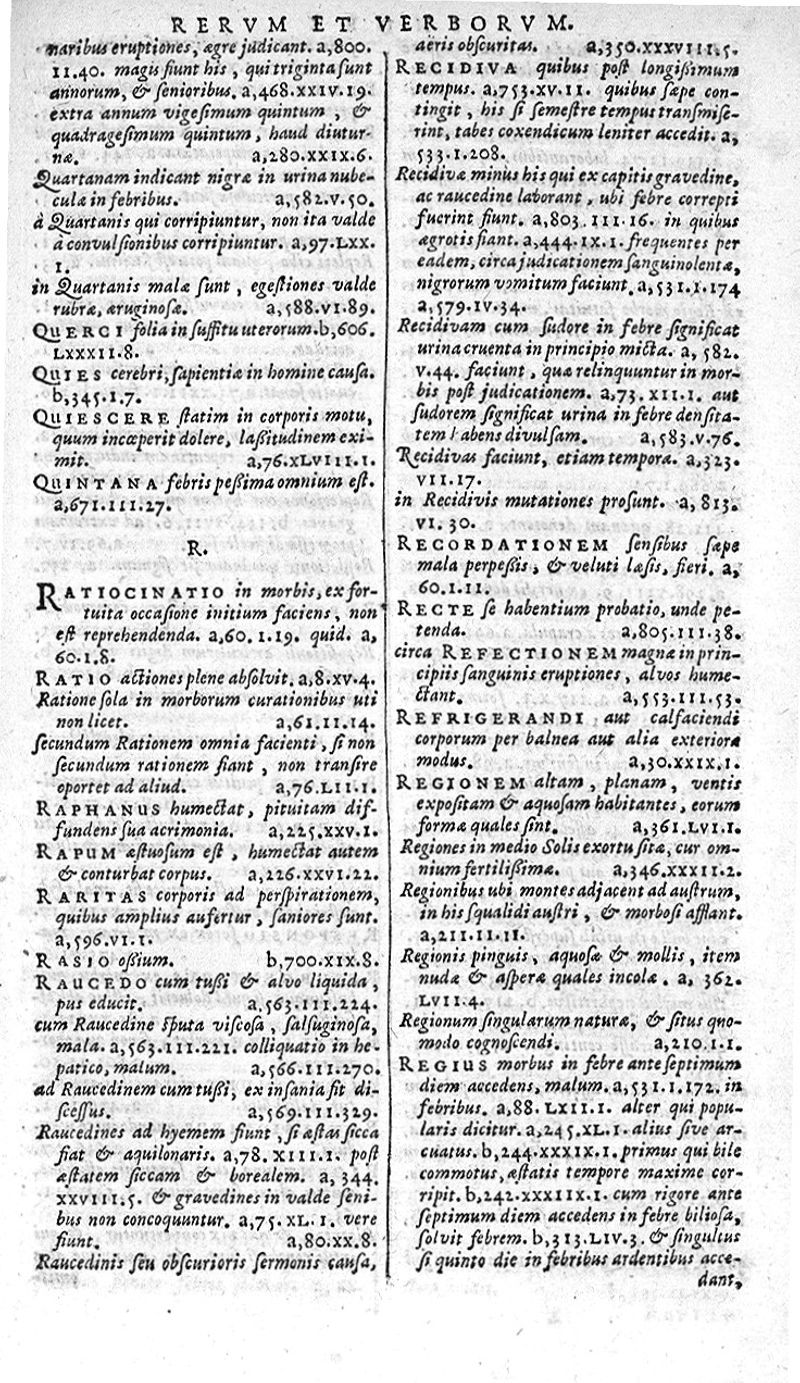 RERVM ET VERBORVM.
naribus eruptiones, ægre judicant. a,800.
II.40. magis fiunt his, qui triginta sunt
annorum, & senioribus. a,468.XXIV.19.
extra annum vigesimum quintum, &
quadragesimum quintum, haud diutur-
næ. a,280.XXIX.6.
Quartanam indicant nigræ in urina nube-
culæ in febribus. a,582.V.50.
à Quartanis qui corripiuntur, non ita valde
à convulsionibus corripiuntur. a,97.LXX.
I.
in Quartanis malæ sunt, egestiones valde
rubræ, æruginosæ. a,588.VI.89.
QUERCI folia in suffitu uterorum. b,606.
LXXXII.8.
QUIES cerebri, sapientiæ in homine causa.
b,345.I.7.
QUIESCERE statim in corporis motu,
quum incœperit dolere, lassitudinem exi-
mit. a,76.XLVIII.I.
QUINTANA febris pessima omnium est.
a,671.III.27.
R.
RATIOCINATIO in morbis, ex for-
tuita occasione initium faciens, non
est reprehendenda. a,60.I.19. quid. a,
60.I.8.
RATIO actiones plene absolvit. a,8.XV.4.
Ratione sola in morborum curationibus uti
non licet. a,61.II.14.
secundum Rationem omnia facienti, si non
secundum rationem fiant, non transire
oportet ad aliud. a,76.LII.I.
RAPHANUS humectat, pituitam dif-
fundens sua acrimonia. a,225.XXV.I.
RAPUM æstuosum est, humectat autem
& conturbat corpus. a,226.XXVI.22.
RARITAS corporis ad perspirationem,
quibus amplius aufertur, saniores sunt.
a,596.VI.I.
RASIO ossium. b,700.XIX.8.
RAUCEDO cum tussi & alvo liquida,
pus educit. a,563.III.224.
cum Raucedine sputa viscosa, salsuginosa,
mala. a,563.III.221. colliquatio in he-
patico, malum. a,566.III.270.
ad Raucedinem cum tussi, ex insania fit di-
scessus. a,569.III.329.
Raucedines ad hyemem fiunt, si æstas sicca
fiat & aquilonaris. a,78.XIII.I. post
æstatem siccam & borealem. a,344.
XXVIII.5. & gravedines in valde seni-
bus non concoquuntur. a,75.XL.I. vere
fiunt. a,80.XX.8.
Raucedinis seu obscurioris sermonis causa,
aeris obscuritas. a,350.XXXVIII.5.
RECIDIVA quibus post longissimum
tempus. a,753.XV.II. quibus sæpe con-
tingit, his si semestre tempus transmise-
rint, tabes coxendicum leniter accedit. a,
533.I.208.
Recidivæ minus his qui ex capitis gravedine,
ac raucedine laborant, ubi febre correpti
fuerint fiunt. a,803.III.16. in quibus
ægrotis fiant. a,444.IX.I. frequentes per
eadem, circa judicationem sanguinolentæ,
nigrorum vomitum faciunt. a,531.I.174
a,579.IV.34.
Recidivam cum sudore in febre significat
urina cruenta in principio micta. a, 582.
V.44. faciunt, quæ relinquuntur in mor-
bis post judicationem. a,73.XII.I. aut
sudorem significat urina in febre densita-
tem habens divulsam. a,583.V.76.
Recidivas faciunt, etiam tempora. a,323.
VII.17.
in Recidivis mutationes prosunt. a, 813.
VI. 30.
RECORDATIONEM sensibus sæpe
mala perpessis, & veluti læsis, fieri. a,
60.I.II.
RECTE se habentium probatio, unde pe-
tenda. a,805.III.38.
circa REFECTIONEM magnæ in prin-
cipiis sanguinis eruptiones, alvos hume-
ctant. a,553.III.53.
REFRIGERANDI aut calfaciendi
corporum per balnea aut alia exteriora
modus. a,30.XXIX.I.
REGIONEM altam, planam, ventis
expositam & aquosam habitantes, eorum
formæ quales sint. a,361.LVI.I.
Regiones in medio Solis exortu sitæ, cur om-
nium fertilissimæ. a,346.XXXII.2.
Regionibus ubi montes adjacent ad austrum,
in his squalidi austri, & morbosi afflant.
a,211.II.II.
Regionis pinguis, aquosæ & mollis, item
nudæ & asperæ quales incolæ. a, 362.
LVII.4.
Regionum singularum naturæ, & situs quo-
modo cognoscendi. a,210.I.I.
REGIUS morbus in febre ante septimum
diem accedens, malum. a,531.I.172. in
febribus. a,88.LXIII.I. alter qui popu-
laris dicitur. a,245.XL.I. alius sive ar-
cuatus. b,244.XXXIX.I. primus qui bile
commotus, æstatis tempore maxime cor-
ripit. b,242.XXXIIX.I. cum rigore ante
septimum diem accedens in febre biliosa,
solvit febrem. b,313.LIV.3. & singultus
si quinto die in febribus ardentibus acce-
dant,